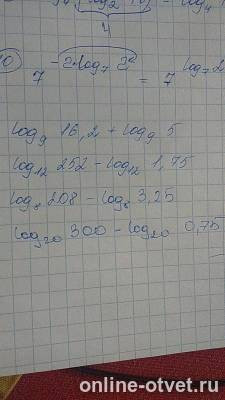 4
7^(-2log₇ 2²) = 7^(log₇ 2
log₉ 16,2 + log₉ 5
log₁₂ 252 - log₁₂ 1,75
log₈ 208 - log₈ 3,25
log₂₀ 300 - log₂₀ 0,75
online-otvet.ru